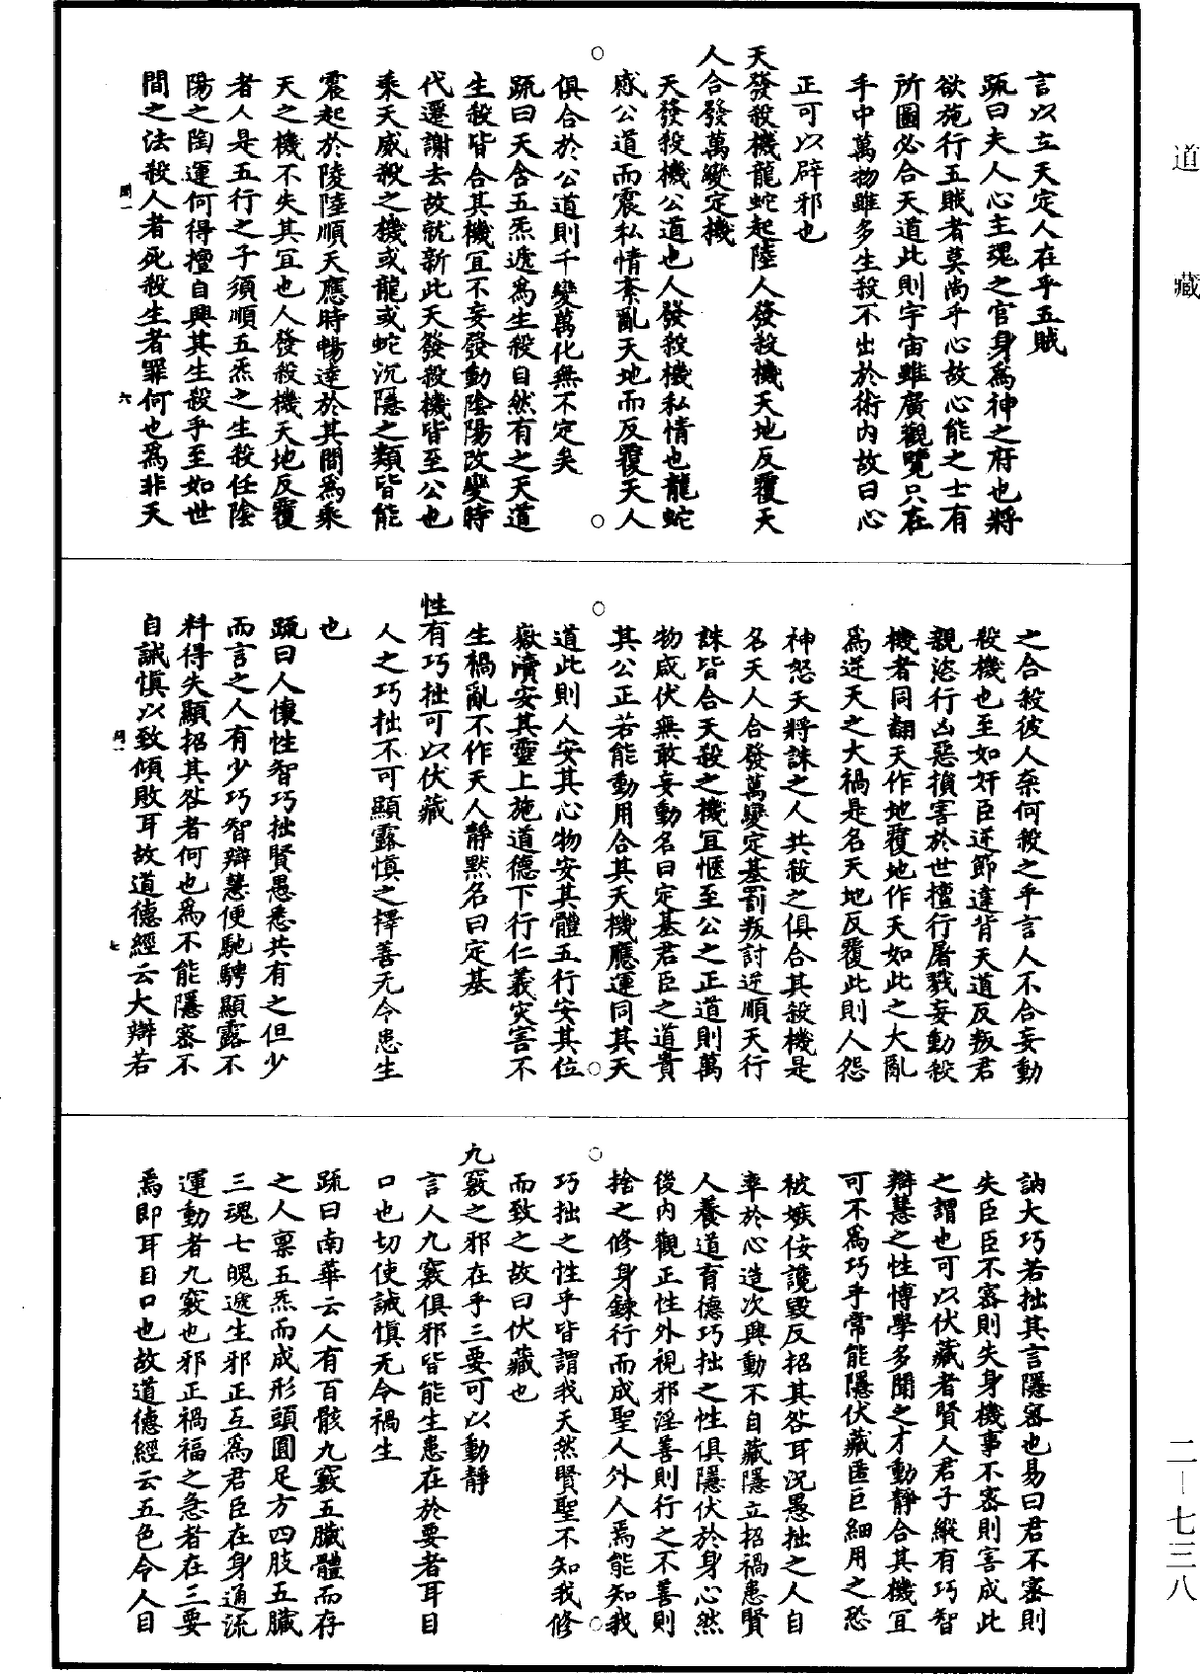 道藏
言以立天定人在乎五賊
疏曰夫人心主魂之官身為神之府也將
欲施行五賊者莫尚乎心故心能之士有
所圖必合天道此則宇宙雖廣觀覽只在
手中萬物雖多生殺不出於術內故曰心
正可以辟邪也
天發殺機龍蛇起陸人發殺機天地反覆天
人合發萬變定機
天發殺機公道也人發殺機私情也龍蛇
感公道而震私情紊亂天地而反覆天人
俱合於公道則千變萬化無不定矣
疏曰天含五炁遞為生殺自然有之天道
生殺皆合其機宜不妄發動陰陽改變時
代遷謝去故就新此天發殺機皆至公也
乘天威殺之機或龍或蛇沉隱之類皆能
震起於陵陸順天應時暢達於其間為乘
天之機不失其宜也人發殺機天地反覆
者人是五行之子須順五炁之生殺任陰
陽之陶運何得擅自興其生殺乎至如世
間之法殺人者死殺生者罪何也為非天
之合殺彼人柰何殺之乎言人不合妄動
殺機也至如奸臣逆節違背天道反叛君
親恣行凶惡損害於世擅行屠戮妄動殺
機者同翻天作地覆地作天如此之大亂
為逆天之大禍是名天地反覆此則人怨
神怒天將誅之人共殺之俱合其殺機是
名天人合發萬變定基罰叛討逆順天行
誅皆合天殺之機宜愜至公之正道則萬
物咸伏無敢妄動名曰定基君臣之道貴
其公正若能動用合其天機應運同其天
道此則人安其心物安其體五行安其位
嶽瀆安其靈上施道德下行仁義災害不
生禍亂不作天人靜默名曰定基
性有巧拙可以伏藏
人之巧拙不可顯露慎之擇善无令患生
也
疏曰人懷性智巧拙賢愚悉共有之但少
而言之人有少巧智辯慧便馳騁顯露不
料得失顯招其咎者何也為不能隱密不
自誡慎以致傾敗耳故道德經云大辯若
訥大巧若拙其言隱密也易曰君不密則
失臣臣不密則失身機事不密則害成此
之謂也可以伏藏者賢人君子縱有巧智
辯慧之性博學多聞之才動靜合其機宜
可不為巧乎常能隱伏藏匿巨細用之恐
被嫉佞讒毀反招其咎耳況愚拙之人自
率於心造次興動不自藏隱立招禍患賢
人養道育德巧拙之性俱隱伏於身心然
後內觀正性外視邪淫善則行之不善則
捨之修身鍊行而成聖人外人焉能知我
巧拙之性乎皆謂我天然賢聖不知我修
而致之故曰伏藏也
九竅之邪在乎三要可以動靜
言人九竅俱邪皆能生患在於要者耳目
口也切使誡慎无令禍生
疏曰南華云人有百骸九竅五臟體而存
之人稟五炁而成形頭圓足方四肢五臟
三魂七魄遞生邪正互為君臣在身通流
運動者九竅也邪正禍福之急者在三要
焉即耳目口也故道德經云五色令人目
二一七三八